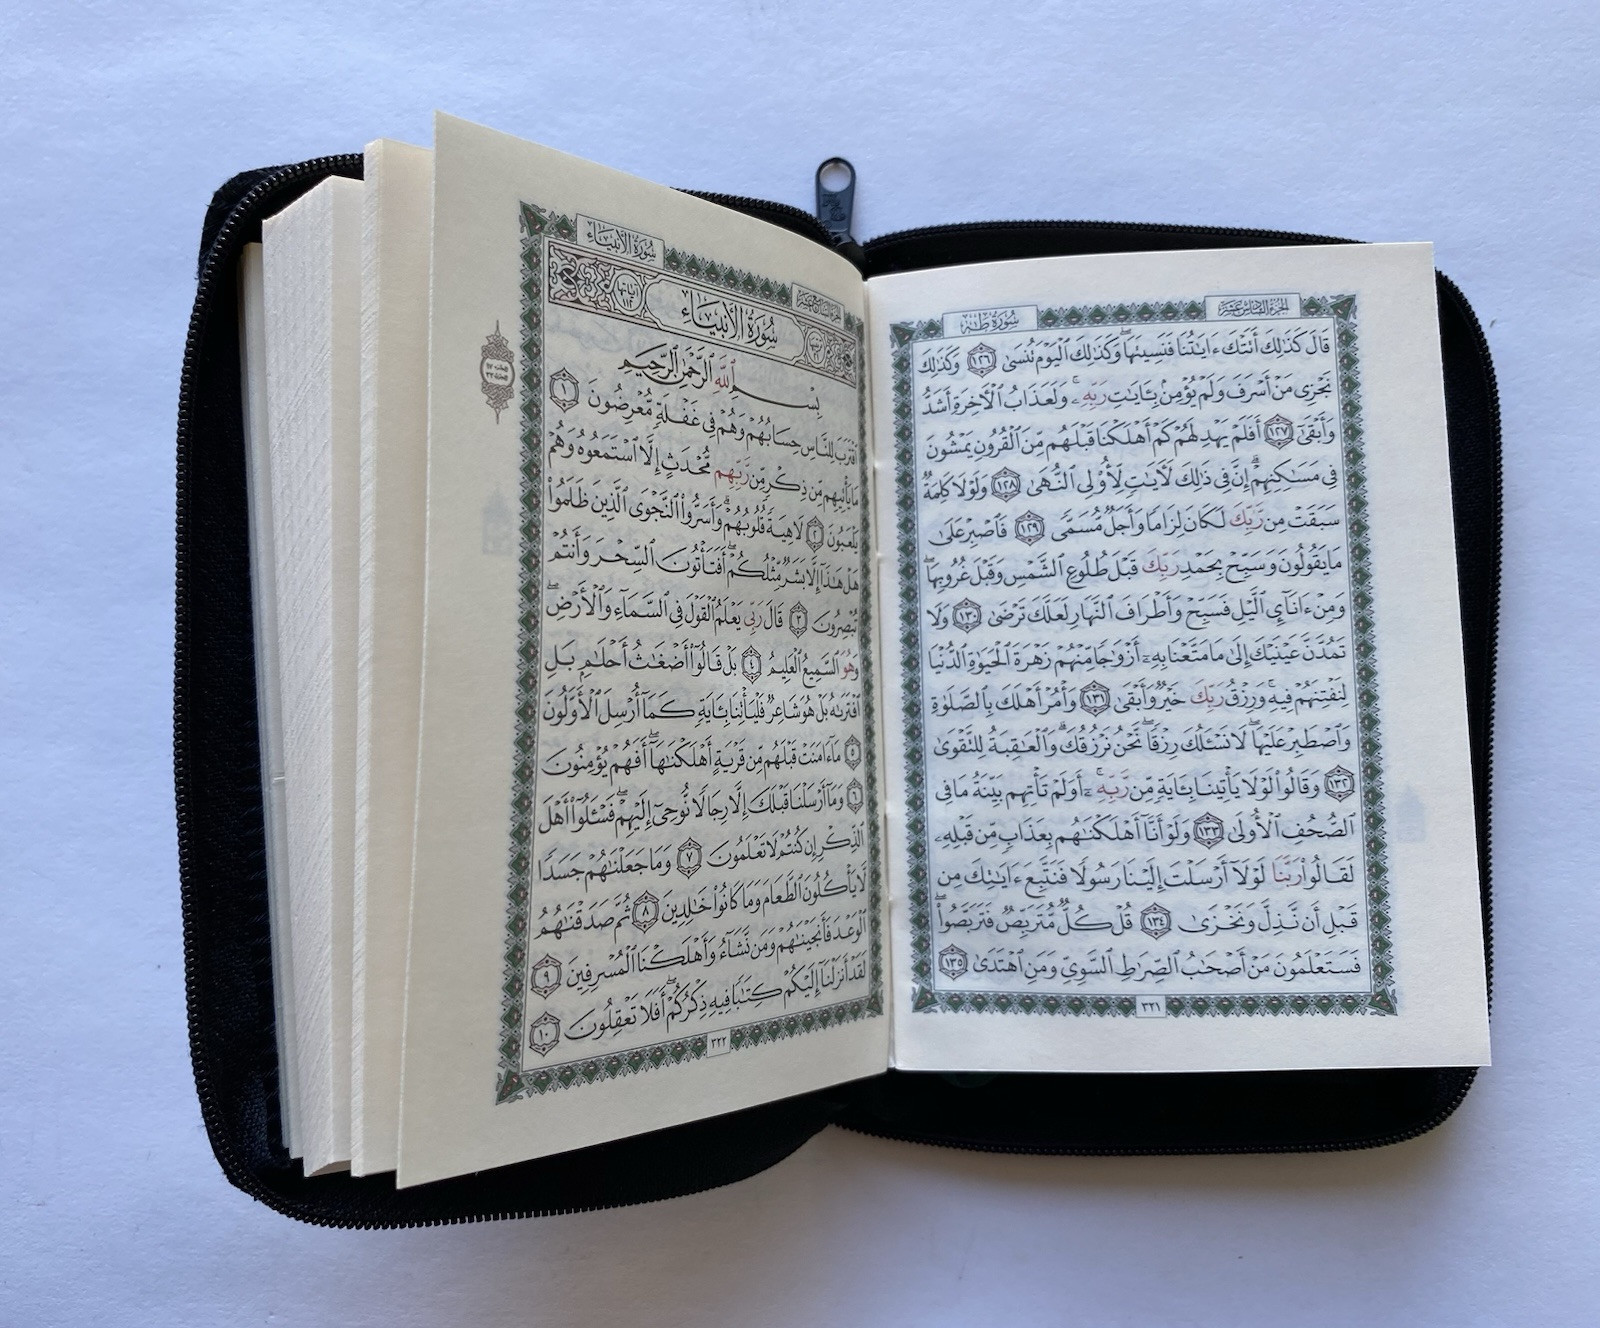 سُورَةُ طه
الجُزْءُ السَّادِسَ عَشَرَ
قَالَ كَذَٰلِكَ أَتَتْكَ ءَايَٰتُنَا فَنَسِيتَهَا ۖ وَكَذَٰلِكَ ٱلْيَوْمَ تُنسَىٰ ١٢٦ وَكَذَٰلِكَ
نَجْزِى مَنْ أَسْرَفَ وَلَمْ يُؤْمِنۢ بِـَٔايَٰتِ رَبِّهِۦ ۚ وَلَعَذَابُ ٱلْـَٔاخِرَةِ أَشَدُّ
وَأَبْقَىٰٓ ١٢٧ أَفَلَمْ يَهْدِ لَهُمْ كَمْ أَهْلَكْنَا قَبْلَهُم مِّنَ ٱلْقُرُونِ يَمْشُونَ
فِى مَسَٰكِنِهِمْ ۗ إِنَّ فِى ذَٰلِكَ لَـَٔايَٰتٍ لِّأُو۟لِى ٱلنُّهَىٰ ١٢٨ وَلَوْلَا كَلِمَةٌ
سَبَقَتْ مِن رَّبِّكَ لَكَانَ لِزَامًا وَأَجَلٌ مُّسَمًّى ١٢٩ فَٱصْبِرْ عَلَىٰ
مَا يَقُولُونَ وَسَبِّحْ بِحَمْدِ رَبِّكَ قَبْلَ طُلُوعِ ٱلشَّمْسِ وَقَبْلَ غُرُوبِهَا ۖ
وَمِنْ ءَانَآئِ ٱلَّيْلِ فَسَبِّحْ وَأَطْرَافَ ٱلنَّهَارِ لَعَلَّكَ تَرْضَىٰ ١٣٠ وَلَا
تَمُدَّنَّ عَيْنَيْكَ إِلَىٰ مَا مَتَّعْنَا بِهِۦٓ أَزْوَٰجًا مِّنْهُمْ زَهْرَةَ ٱلْحَيَوٰةِ ٱلدُّنْيَا
لِنَفْتِنَهُمْ فِيهِ ۚ وَرِزْقُ رَبِّكَ خَيْرٌ وَأَبْقَىٰ ١٣١ وَأْمُرْ أَهْلَكَ بِٱلصَّلَوٰةِ
وَٱصْطَبِرْ عَلَيْهَا ۖ لَا نَسْـَٔلُكَ رِزْقًا ۖ نَّحْنُ نَرْزُقُكَ ۗ وَٱلْعَٰقِبَةُ لِلتَّقْوَىٰ
١٣٢ وَقَالُوا۟ لَوْلَا يَأْتِينَا بِـَٔايَةٍ مِّن رَّبِّهِۦٓ ۚ أَوَلَمْ تَأْتِهِم بَيِّنَةُ مَا فِى
ٱلصُّحُفِ ٱلْأُولَىٰ ١٣٣ وَلَوْ أَنَّآ أَهْلَكْنَٰهُم بِعَذَابٍ مِّن قَبْلِهِۦ
لَقَالُوا۟ رَبَّنَا لَوْلَآ أَرْسَلْتَ إِلَيْنَا رَسُولًا فَنَتَّبِعَ ءَايَٰتِكَ مِن
قَبْلِ أَن نَّذِلَّ وَنَخْزَىٰ ١٣٤ قُلْ كُلٌّ مُّتَرَبِّصٌ فَتَرَبَّصُوا۟ ۖ
فَسَتَعْلَمُونَ مَنْ أَصْحَٰبُ ٱلصِّرَٰطِ ٱلسَّوِىِّ وَمَنِ ٱهْتَدَىٰ ١٣٥
٣٢١
سُورَةُ الأَنبِيَاءِ
سُورَةُ الأَنبِيَاءِ
آيَاتُهَا ١١٢
بِسْمِ ٱللَّهِ ٱلرَّحْمَٰنِ ٱلرَّحِيمِ
ٱقْتَرَبَ لِلنَّاسِ حِسَابُهُمْ وَهُمْ فِى غَفْلَةٍ مُّعْرِضُونَ ١
مَا يَأْتِيهِم مِّن ذِكْرٍ مِّن رَّبِّهِم مُّحْدَثٍ إِلَّا ٱسْتَمَعُوهُ وَهُمْ
يَلْعَبُونَ ٢ لَاهِيَةً قُلُوبُهُمْ ۗ وَأَسَرُّوا۟ ٱلنَّجْوَى ٱلَّذِينَ ظَلَمُوا۟
هَلْ هَٰذَآ إِلَّا بَشَرٌ مِّثْلُكُمْ ۖ أَفَتَأْتُونَ ٱلسِّحْرَ وَأَنتُمْ
تُبْصِرُونَ ٣ قَالَ رَبِّى يَعْلَمُ ٱلْقَوْلَ فِى ٱلسَّمَآءِ وَٱلْأَرْضِ ۖ
وَهُوَ ٱلسَّمِيعُ ٱلْعَلِيمُ ٤ بَلْ قَالُوٓا۟ أَضْغَٰثُ أَحْلَٰمٍۭ بَلِ
ٱفْتَرَىٰهُ بَلْ هُوَ شَاعِرٌ فَلْيَأْتِنَا بِـَٔايَةٍ كَمَآ أُرْسِلَ ٱلْأَوَّلُونَ
٥ مَآ ءَامَنَتْ قَبْلَهُم مِّن قَرْيَةٍ أَهْلَكْنَٰهَآ ۖ أَفَهُمْ يُؤْمِنُونَ
٦ وَمَآ أَرْسَلْنَا قَبْلَكَ إِلَّا رِجَالًا نُّوحِىٓ إِلَيْهِمْ ۖ فَسْـَٔلُوٓا۟ أَهْلَ
ٱلذِّكْرِ إِن كُنتُمْ لَا تَعْلَمُونَ ٧ وَمَا جَعَلْنَٰهُمْ جَسَدًا
لَّا يَأْكُلُونَ ٱلطَّعَامَ وَمَا كَانُوا۟ خَٰلِدِينَ ٨ ثُمَّ صَدَقْنَٰهُمُ
ٱلْوَعْدَ فَأَنجَيْنَٰهُمْ وَمَن نَّشَآءُ وَأَهْلَكْنَا ٱلْمُسْرِفِينَ ٩
لَقَدْ أَنزَلْنَآ إِلَيْكُمْ كِتَٰبًا فِيهِ ذِكْرُكُمْ ۖ أَفَلَا تَعْقِلُونَ ١٠
٣٢٢